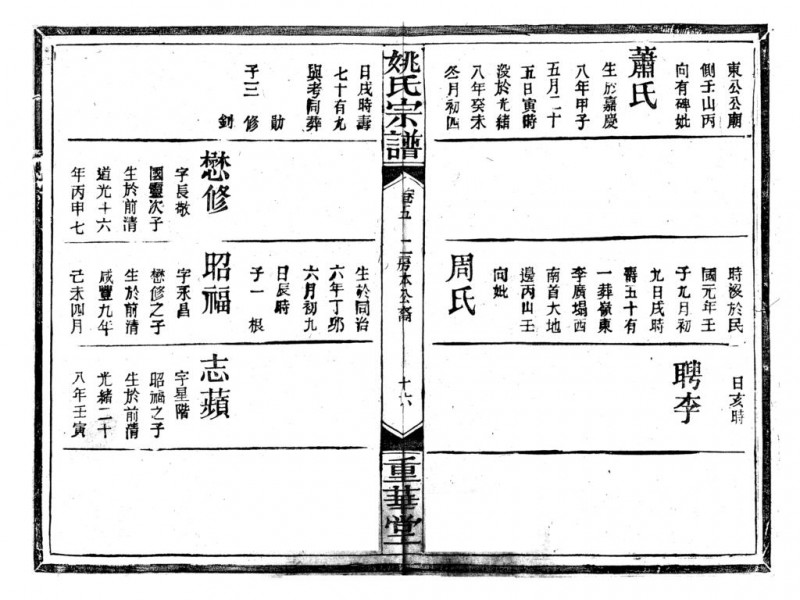 東公公廟
側壬山丙
向有碑妣
蕭氏
生於嘉慶
八年甲子
五月二十
五日寅時
歿於光緒
八年癸未
冬月初四
時歿於民
國元年壬
子九月初
九日戌時
壽五十有
一葬嶺東
李廣塌西
南首大地
邊丙山壬
向妣
周氏
日亥時
聘李
姚氏宗譜
卷五
二房本公裔
十六
重華堂
日戌時壽
七十有九
與考同葬
子三
勛
修
釗
懋修
字長敬
國璽次子
生於前清
道光十六
年丙申七
生於同治
六年丁邜
六月初九
日辰時
子一 根
昭福
字永昌
懋修之子
生於前清
咸豐九年
己未四月
志蘋
字星階
昭福之子
生於前清
光緒二十
八年壬寅